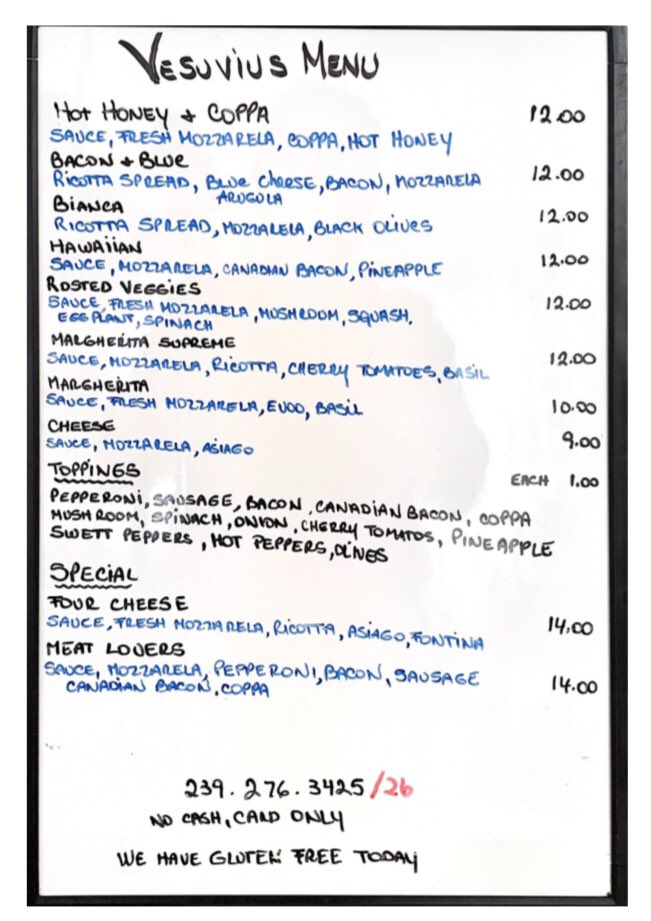 VESUVIUS MENU
HOT HONEY + COPPA 12.00
SAUCE, FRESH MOZZARELA, COPPA, HOT HONEY
BACON + BLUE 12.00
RICOTTA SPREAD, BLUE CHEESE, BACON, MOZZARELA
ARUGULA
BIANCA 12.00
RICOTTA SPREAD, MOZZARELA, BLACK OLIVES
HAWAIIAN 12.00
SAUCE, MOZZARELA, CANADIAN BACON, PINEAPPLE
ROSTED VEGGIES 12.00
SAUCE, FRESH MOZZARELA, MUSHROOM, SQUASH,
EGGPLANT, SPINACH
MARGHERITA SUPREME 12.00
SAUCE, MOZZARELA, RICOTTA, CHERRY TOMATOES, BASIL
MARGHERITA
SAUCE, FRESH MOZZARELA, EVOO, BASIL 10.00
CHEESE 9.00
SAUCE, MOZZARELA, ASIAGO
TOPPINGS EACH 1.00
PEPPERONI, SAUSAGE, BACON, CANADIAN BACON, COPPA
MUSHROOM, SPINACH, ONION, CHERRY TOMATOS, PINEAPPLE
SWETT PEPPERS, HOT PEPPERS, OLIVES
SPECIAL
FOUR CHEESE
SAUCE, FRESH MOZZARELA, RICOTTA, ASIAGO, FONTINA 14.00
MEAT LOVERS
SAUCE, MOZZARELA, PEPPERONI, BACON, SAUSAGE 14.00
CANADIAN BACON, COPPA
239.276.3425/26
NO CASH, CARD ONLY
WE HAVE GLUTEN FREE TODAY